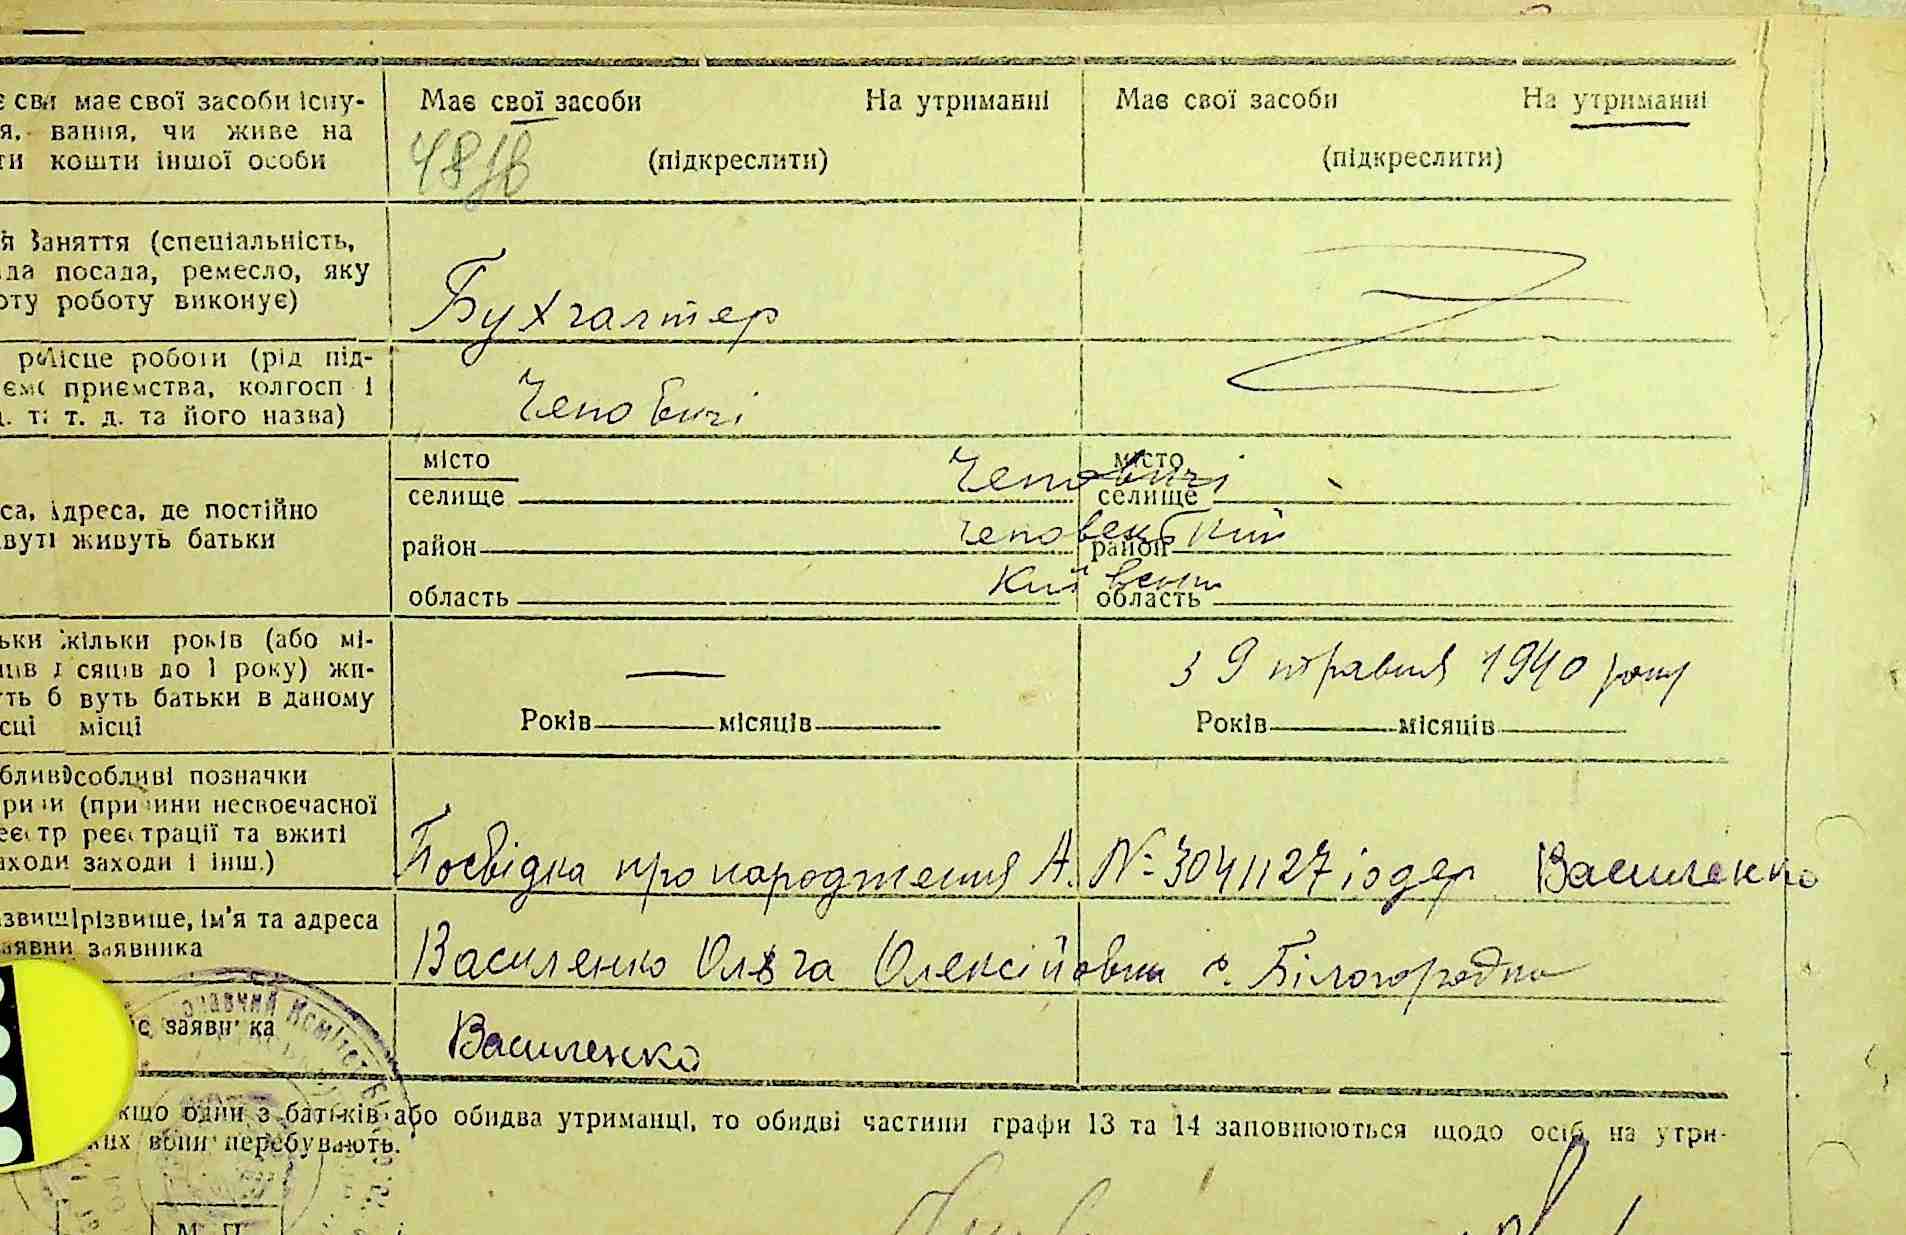 має свої засоби існу-
вання, чи живе на
кошти іншої особи
Має свої засоби На утриманні Має свої засоби На утриманні
(підкреслити) (підкреслити)
Заняття (спеціальність,
посада, ремесло, яку
роботу виконує)
Бухгалтер
Місце роботи (рід під-
приємства, колгосп і
т. д. та його назва)
Чеповичі
Адреса, де постійно
живуть батьки
місто Чеповичі місто
селище селище
район Чеповецький район
область Київськ область
Скільки років (або мі-
сяців до 1 року) жи-
вуть батьки в даному
місці
з 9 травня 1940 року
Років місяців Років місяців
Особливі позначки
(причини несвоєчасної
реєстрації та вжиті
заходи і інш.)
Посвідка про народження А. № 3041127 іодер Василенко
Прізвище, ім'я та адреса
заявника
Василенко Ольга Олексіївна с. Білогородка
заявника
Василенко
якщо один з батьків або обидва утриманці, то обидві частини графи 13 та 14 заповнюються щодо осіб, на утри-
яких вони перебувають.
М. П.